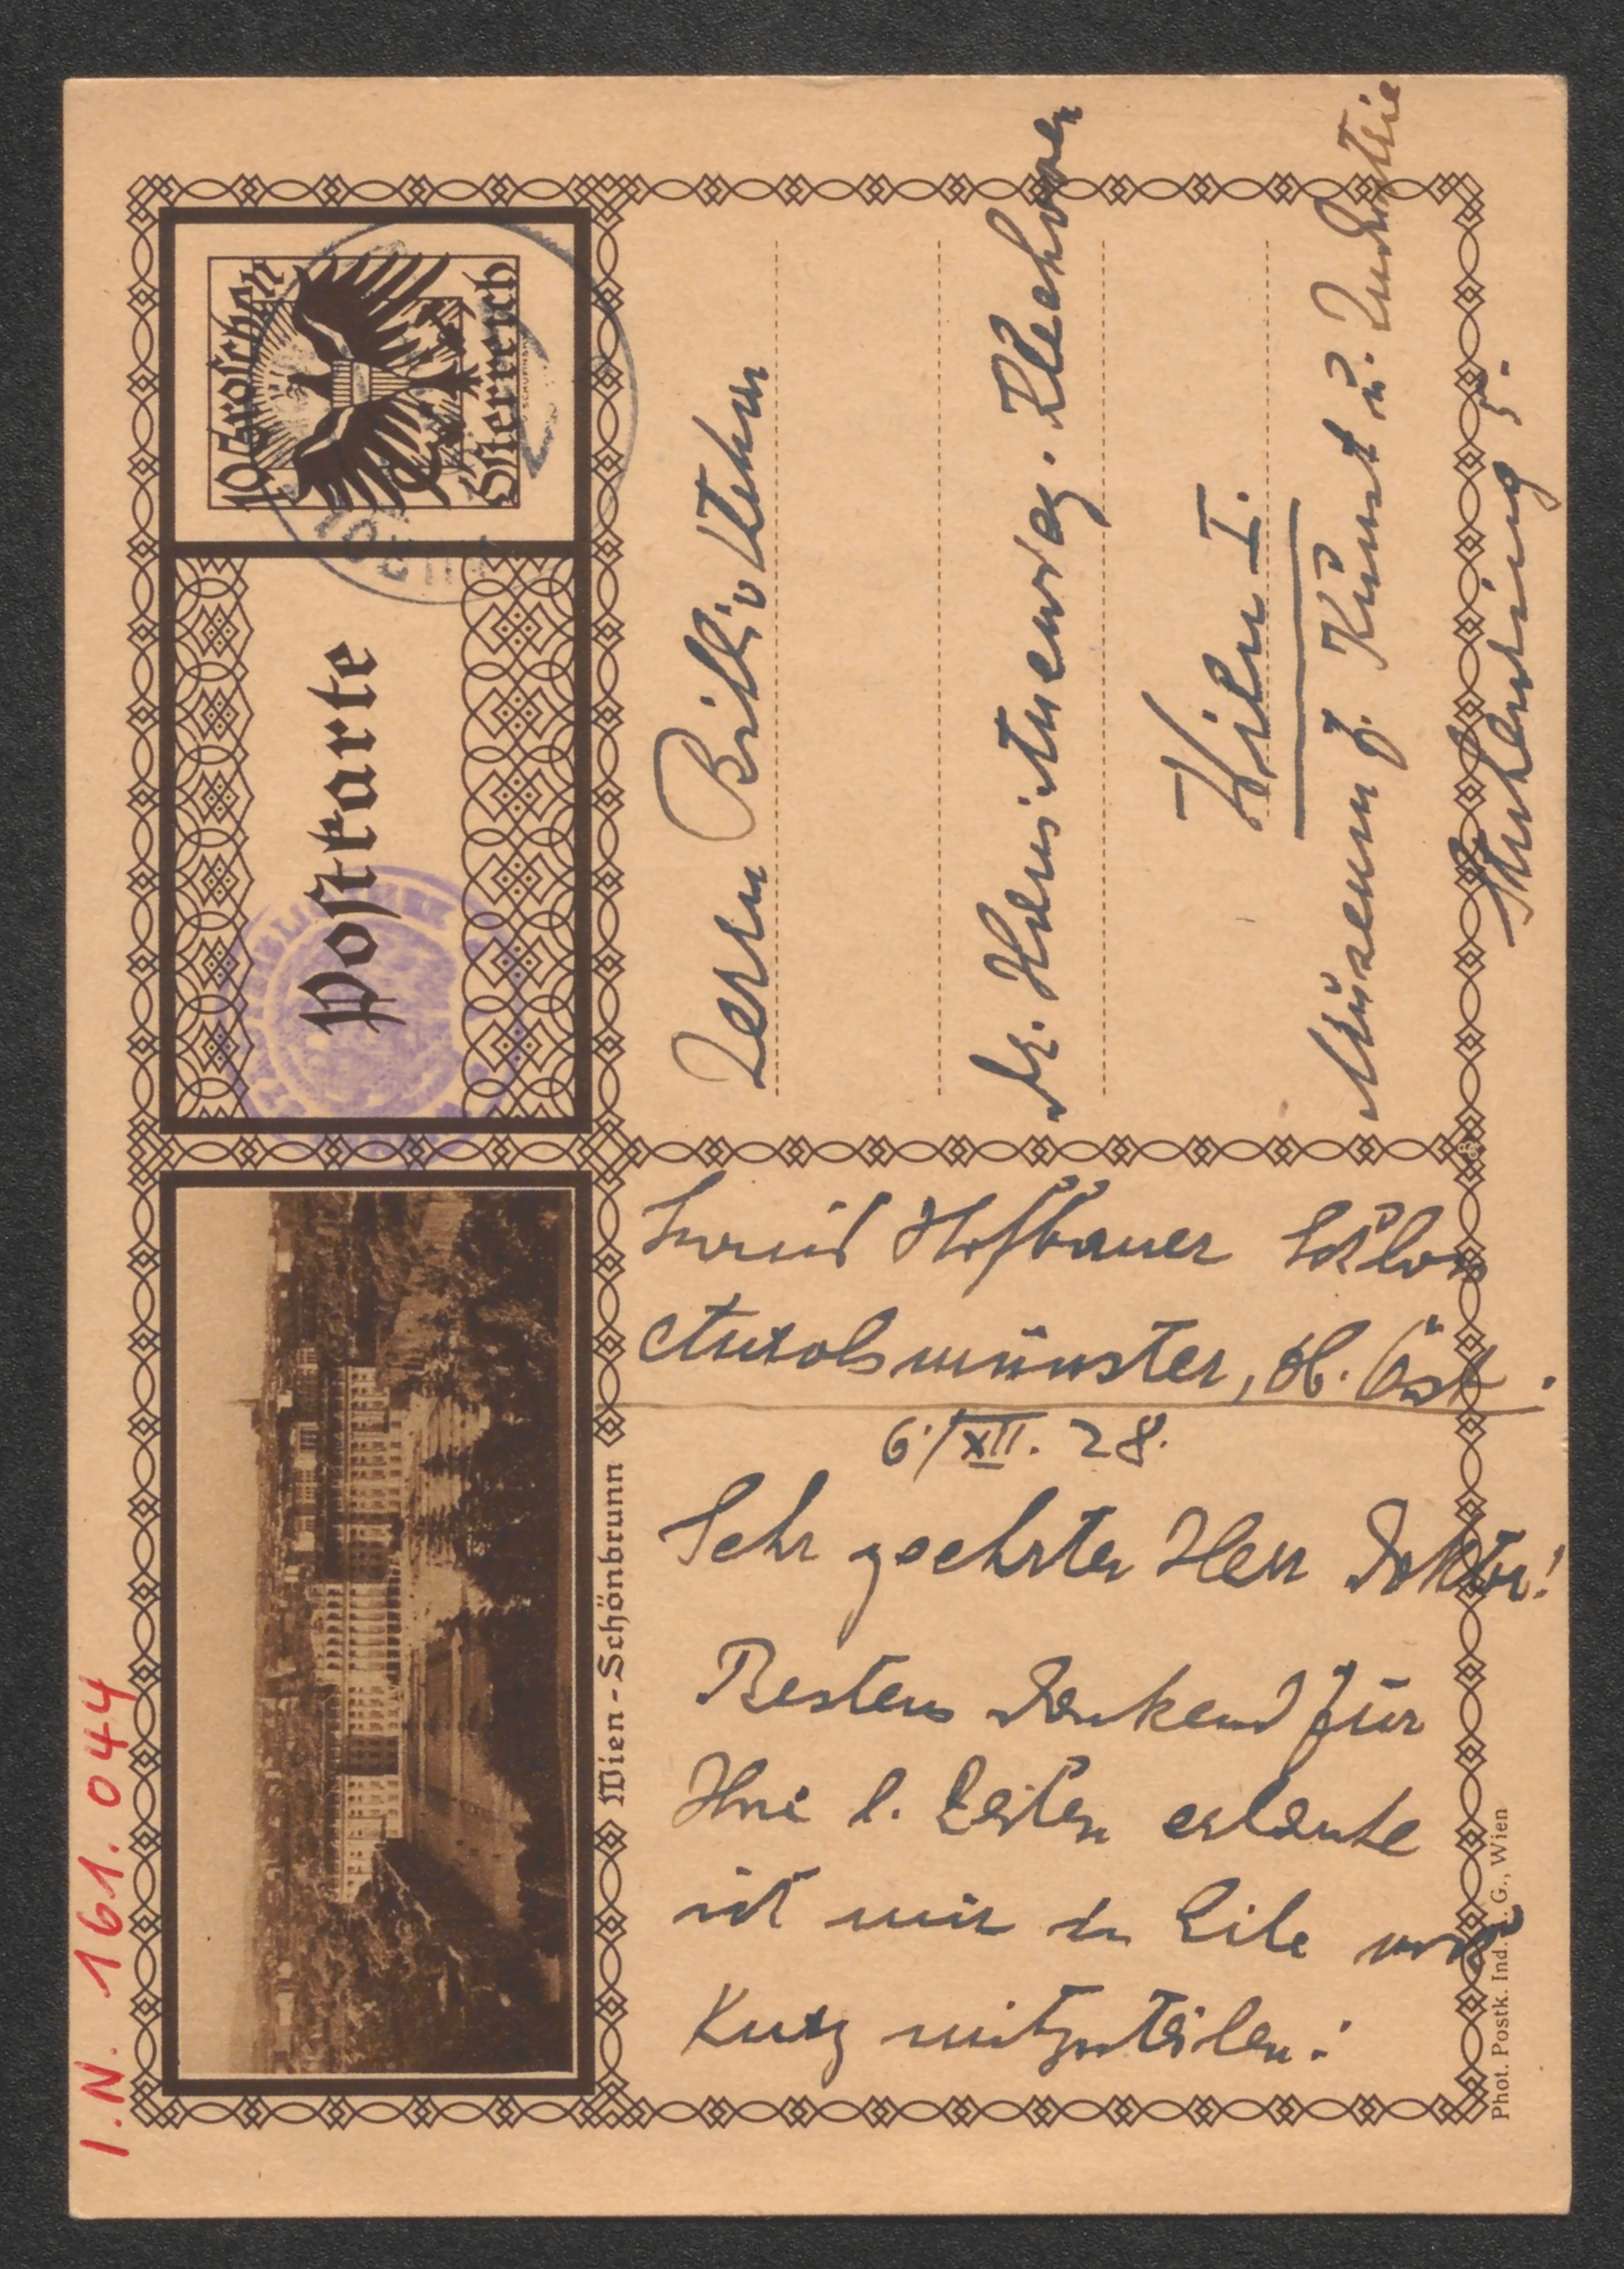 10 Groschen
Österreich
Postkarte
Herrn Bibliothekar
Dr. H. Leisching.
Wien I.
Museum f. Kunst u. Industrie
Stubenring 5.
Hofbauer Schloss
Aurolsmünster, Ob. Öst.
6./XII. 28.
Sehr geehrter Herr Doktor!
Bestens dankend für
Ihre l. Zeilen erlaube
ich mir in Eile nur
Kurz mitzuteilen:
Wien-Schönbrunn
Phot. Postk. Ind. A. G., Wien
I.N. 161.044